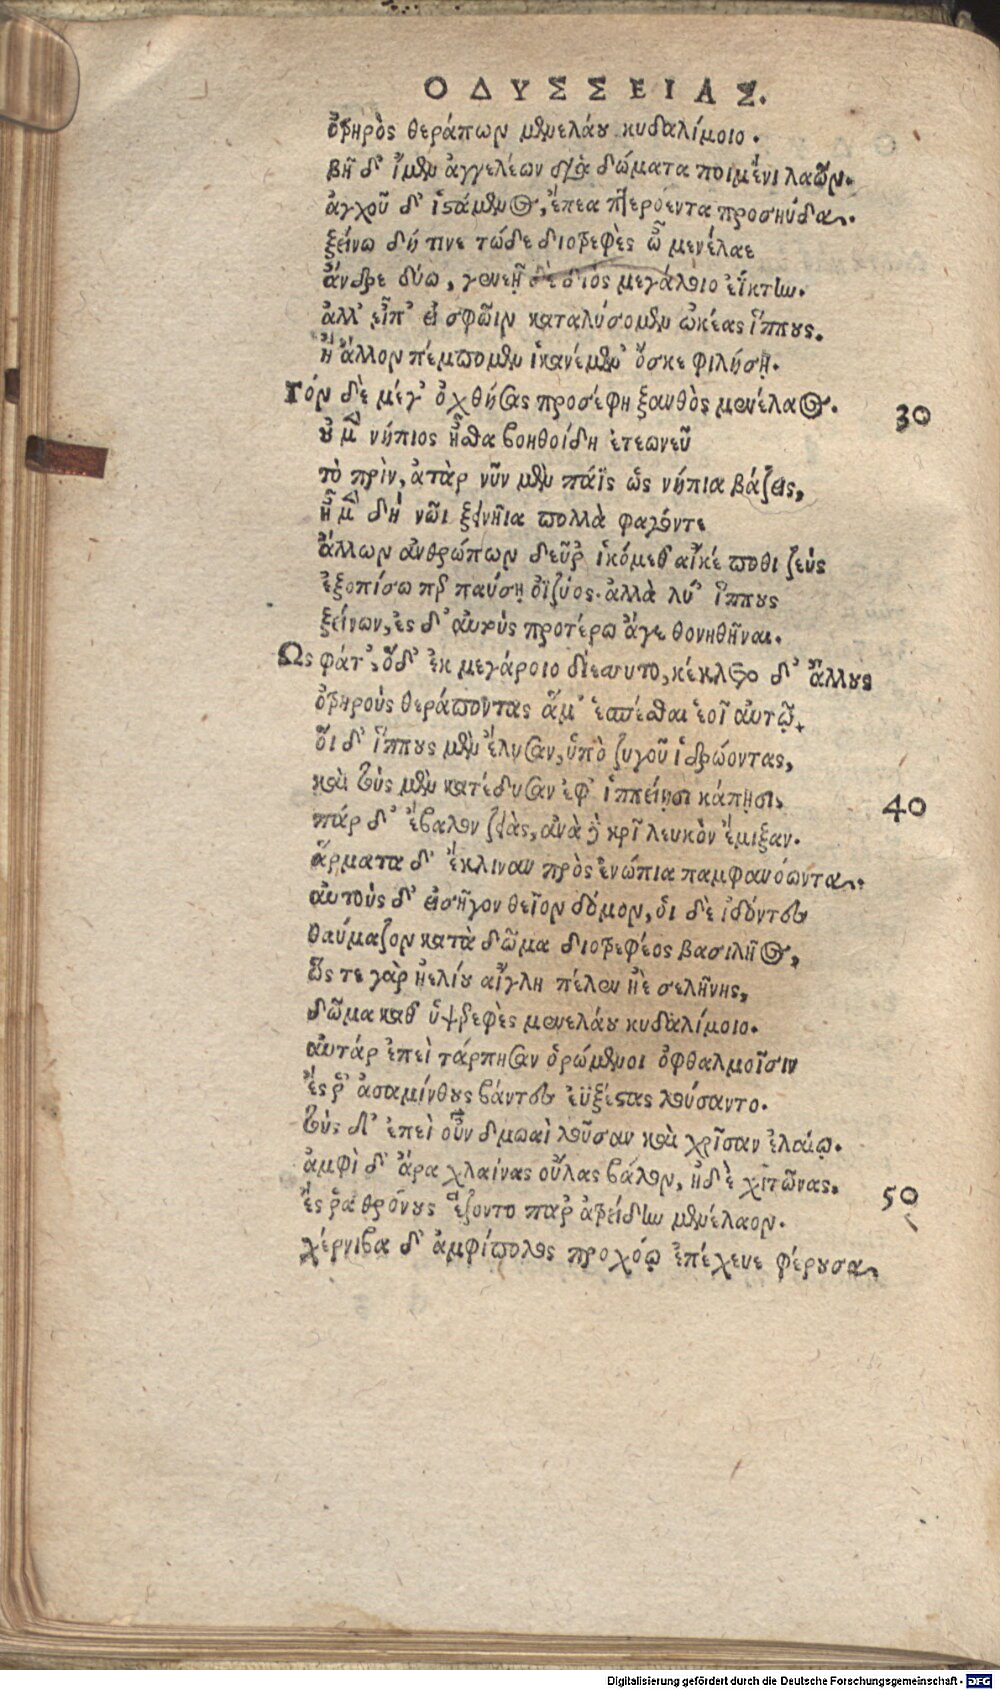 ΟΔΥΣΣΕΙΑΣ.
ὀτρηρὸς θεράπων μενελάου κυδαλίμοιο.
βῆ δ' ἴμεν ἀγγελέων διὰ δώματα ποιμένι λαῶν.
ἀγχοῦ δ' ἱστάμενος, ἔπεα πτερόεντα προσηύδα.
ξείνω δή τινε τώδε διοτρεφὲς ὦ μενέλαε
ἄνδρε δύω, γενεῇ δὲ διὸς μεγάλοιο ἔϊκτην.
ἀλλ' εἶπ' εἰ σφῶϊν καταλύσομεν ὠκέας ἵππους.
ἢ ἄλλον πέμπομεν ἱκανέμεν' ὅσκε φιλήσῃ.
Τόν δὲ μέγ' ὀχθήσας προσέφη ξανθὸς μενέλαος.
30
οὐ μὲν νήπιος ἦσθα βοηθοίδη ἐτεωνεῦ
τὸ πρὶν, ἀτὰρ νῦν μὲν πάϊς ὣς νήπια βάζεις,
ἦ μὲν δὴ νῶι ξεινήϊα πολλὰ φαγόντε
ἄλλων ἀνθρώπων δεῦρ' ἱκόμεθ' αἴκέ ποθι ζεὺς
ἐξοπίσω περ παύσῃ ὀϊζύος. ἀλλὰ λύ' ἵππους
ξείνων, ἐς δ' αὐτοὺς προτέρω ἄγε θοινηθῆναι.
Ως φάτ', ὅδ' ἐκ μεγάροιο διέσσυτο, κέκλετο δ' ἄλλους
ὀτρηροὺς θεράποντας ἅμ' ἑσπέσθαι ἑοῖ αὐτῷ.
οἵ δ' ἵππους μὲν ἔλυσαν, ὑπὸ ζυγοῦ ἱδρώοντας,
καὶ τοὺς μὲν κατέδυσαν ἐφ' ἱππείῃσι κάπῃσι,
40
πάρ δ' ἔβαλον ζειὰς, ἀνὰ δὲ κρῖ λευκὸν ἔμιξαν.
ἅρματα δ' ἔκλιναν πρὸς ἐνώπια παμφανόωντα.
αὐτοὺς δ' εἰσῆγον θεῖον δόμον, οἱ δὲ ἰδόντες
θαύμαζον κατὰ δῶμα διοτρεφέος βασιλῆος,
ὥς τε γὰρ ἠελίου αἴγλη πέλεν ἠὲ σελήνης,
δῶμα καθ' ὑψερεφὲς μενελάου κυδαλίμοιο.
αὐτάρ ἐπεὶ τάρπησαν ὁρώμενοι ὀφθαλμοῖσιν
ἔς ῥ' ἀσαμίνθους βάντες ἐϋξέστας λούσαντο.
τοὺς δ' ἐπεὶ οὖν δμωαὶ λοῦσαν καὶ χρῖσαν ἐλαίῳ.
ἀμφὶ δ' ἄρα χλαίνας οὔλας βάλον, ἠδὲ χιτῶνας,
50
ἔς ῥα θρόνους ἕζοντο παρ' ἀτρείδην μενέλαον.
χέρνιβα δ' ἀμφίπολος προχόῳ ἐπέχευε φέρουσα
Digitalisierung gefördert durch die Deutsche Forschungsgemeinschaft - DFG